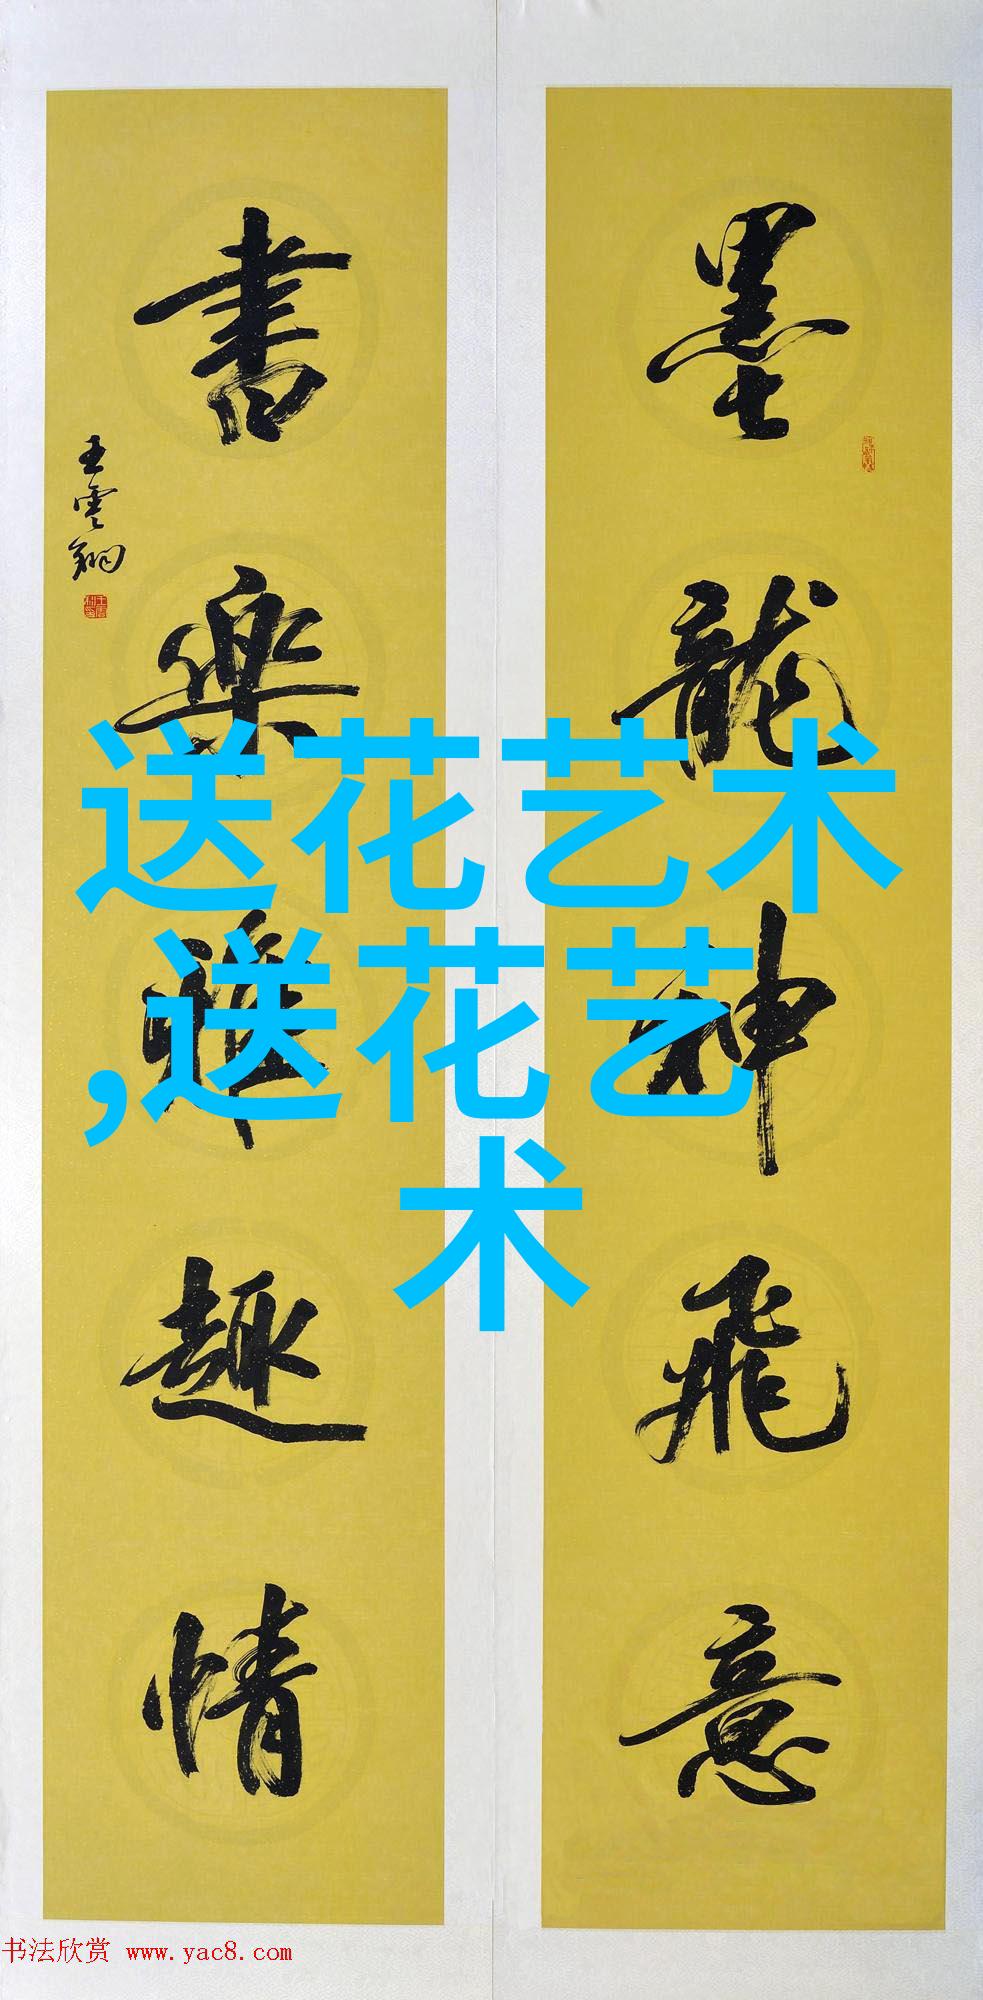 墨龍神飛意
書樂雅趣情
王雲翔
送花艺术
,送花艺
术
书法欣赏 www.yac8.com